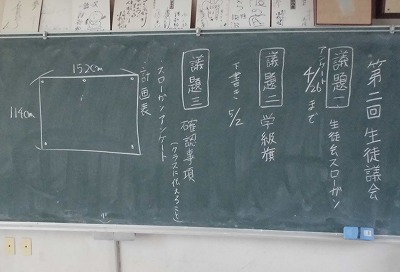 第二回 生徒議会
議題一 生徒会スローガン
アンケート
4/26まで
議題二 学級旗
下書き 5/2
議題三 確認事項
(クラスに伝えること)
スローガンアンケート
計画表
152cm
114cm